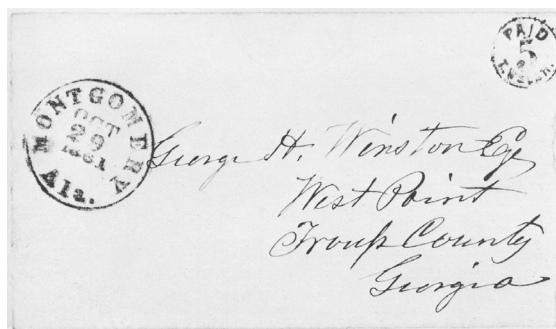 PAID
5
MONTGOMERY
OCT
29
1861
Ala.
George H. Winston Esq
West Point
Troup County
Georgia